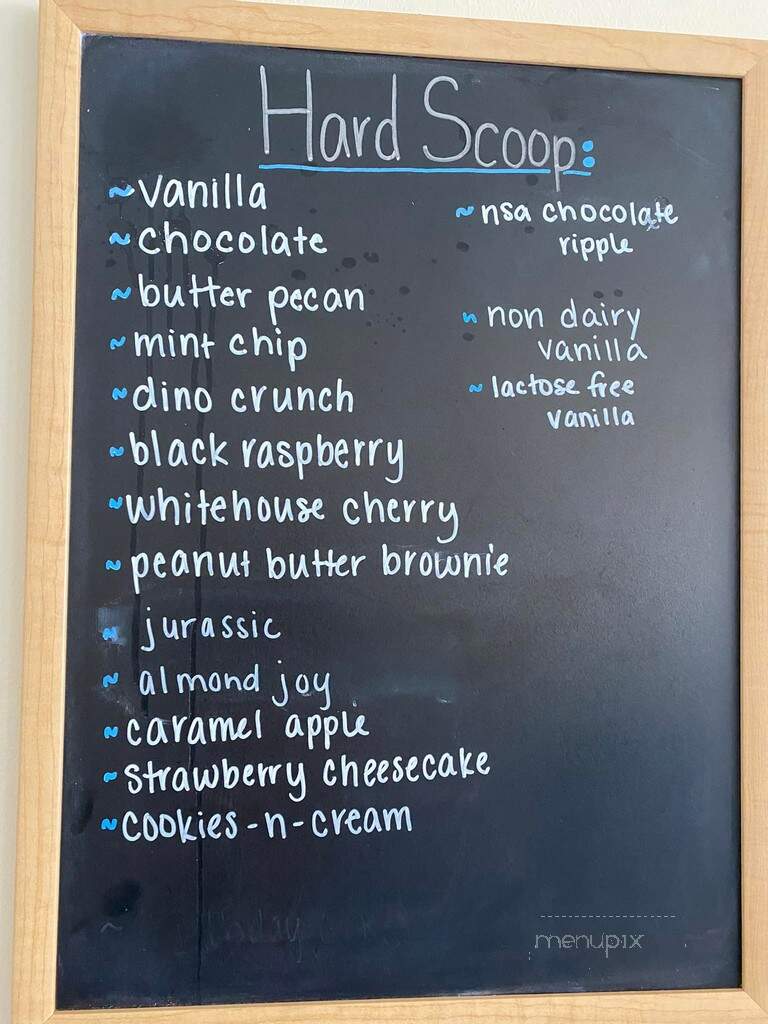 Hard Scoop:
~vanilla
~chocolate
~butter pecan
~mint chip
~dino crunch
~black raspberry
~whitehouse cherry
~peanut butter brownie
~jurassic
~almond joy
~caramel apple
~strawberry cheesecake
~cookies-n-cream
~nsa chocolate
ripple
~non dairy
vanilla
~lactose free
vanilla
menupix